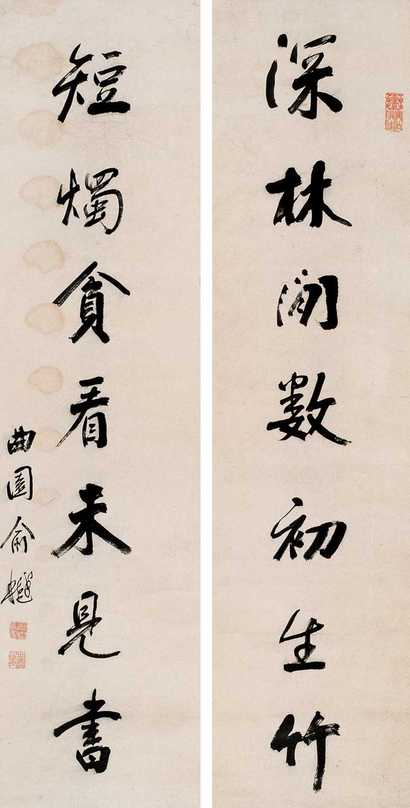 深林閒數初生竹
短燭貪看未見書
曲園俞樾